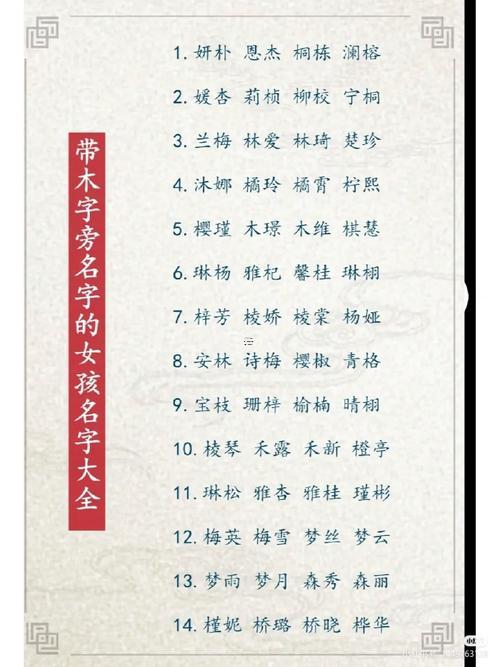 带木字旁名字的女孩名字大全
1.妍朴 恩杰 桐栋 澜榕
2.媛杏 莉桢 柳校 宁桐
3.兰梅 林爱 林琦 楚珍
4.沐娜 橘玲 橘霄 柠熙
5.樱瑾 木璟 木维 棋慧
6.琳杨 雅杞 馨桂 琳栩
7.梓芳 棱娇 棱棠 杨娅
8.安林 诗梅 樱椒 青格
9.宝枝 珊梓 榆楠 晴栩
10.棱琴 禾露 禾新 橙亭
11.琳松 雅杏 雅桂 瑾彬
12.梅英 梅雪 梦丝 梦云
13.梦雨 梦月 森秀 森丽
14.槿妮 桥璐 桥晓 桦华